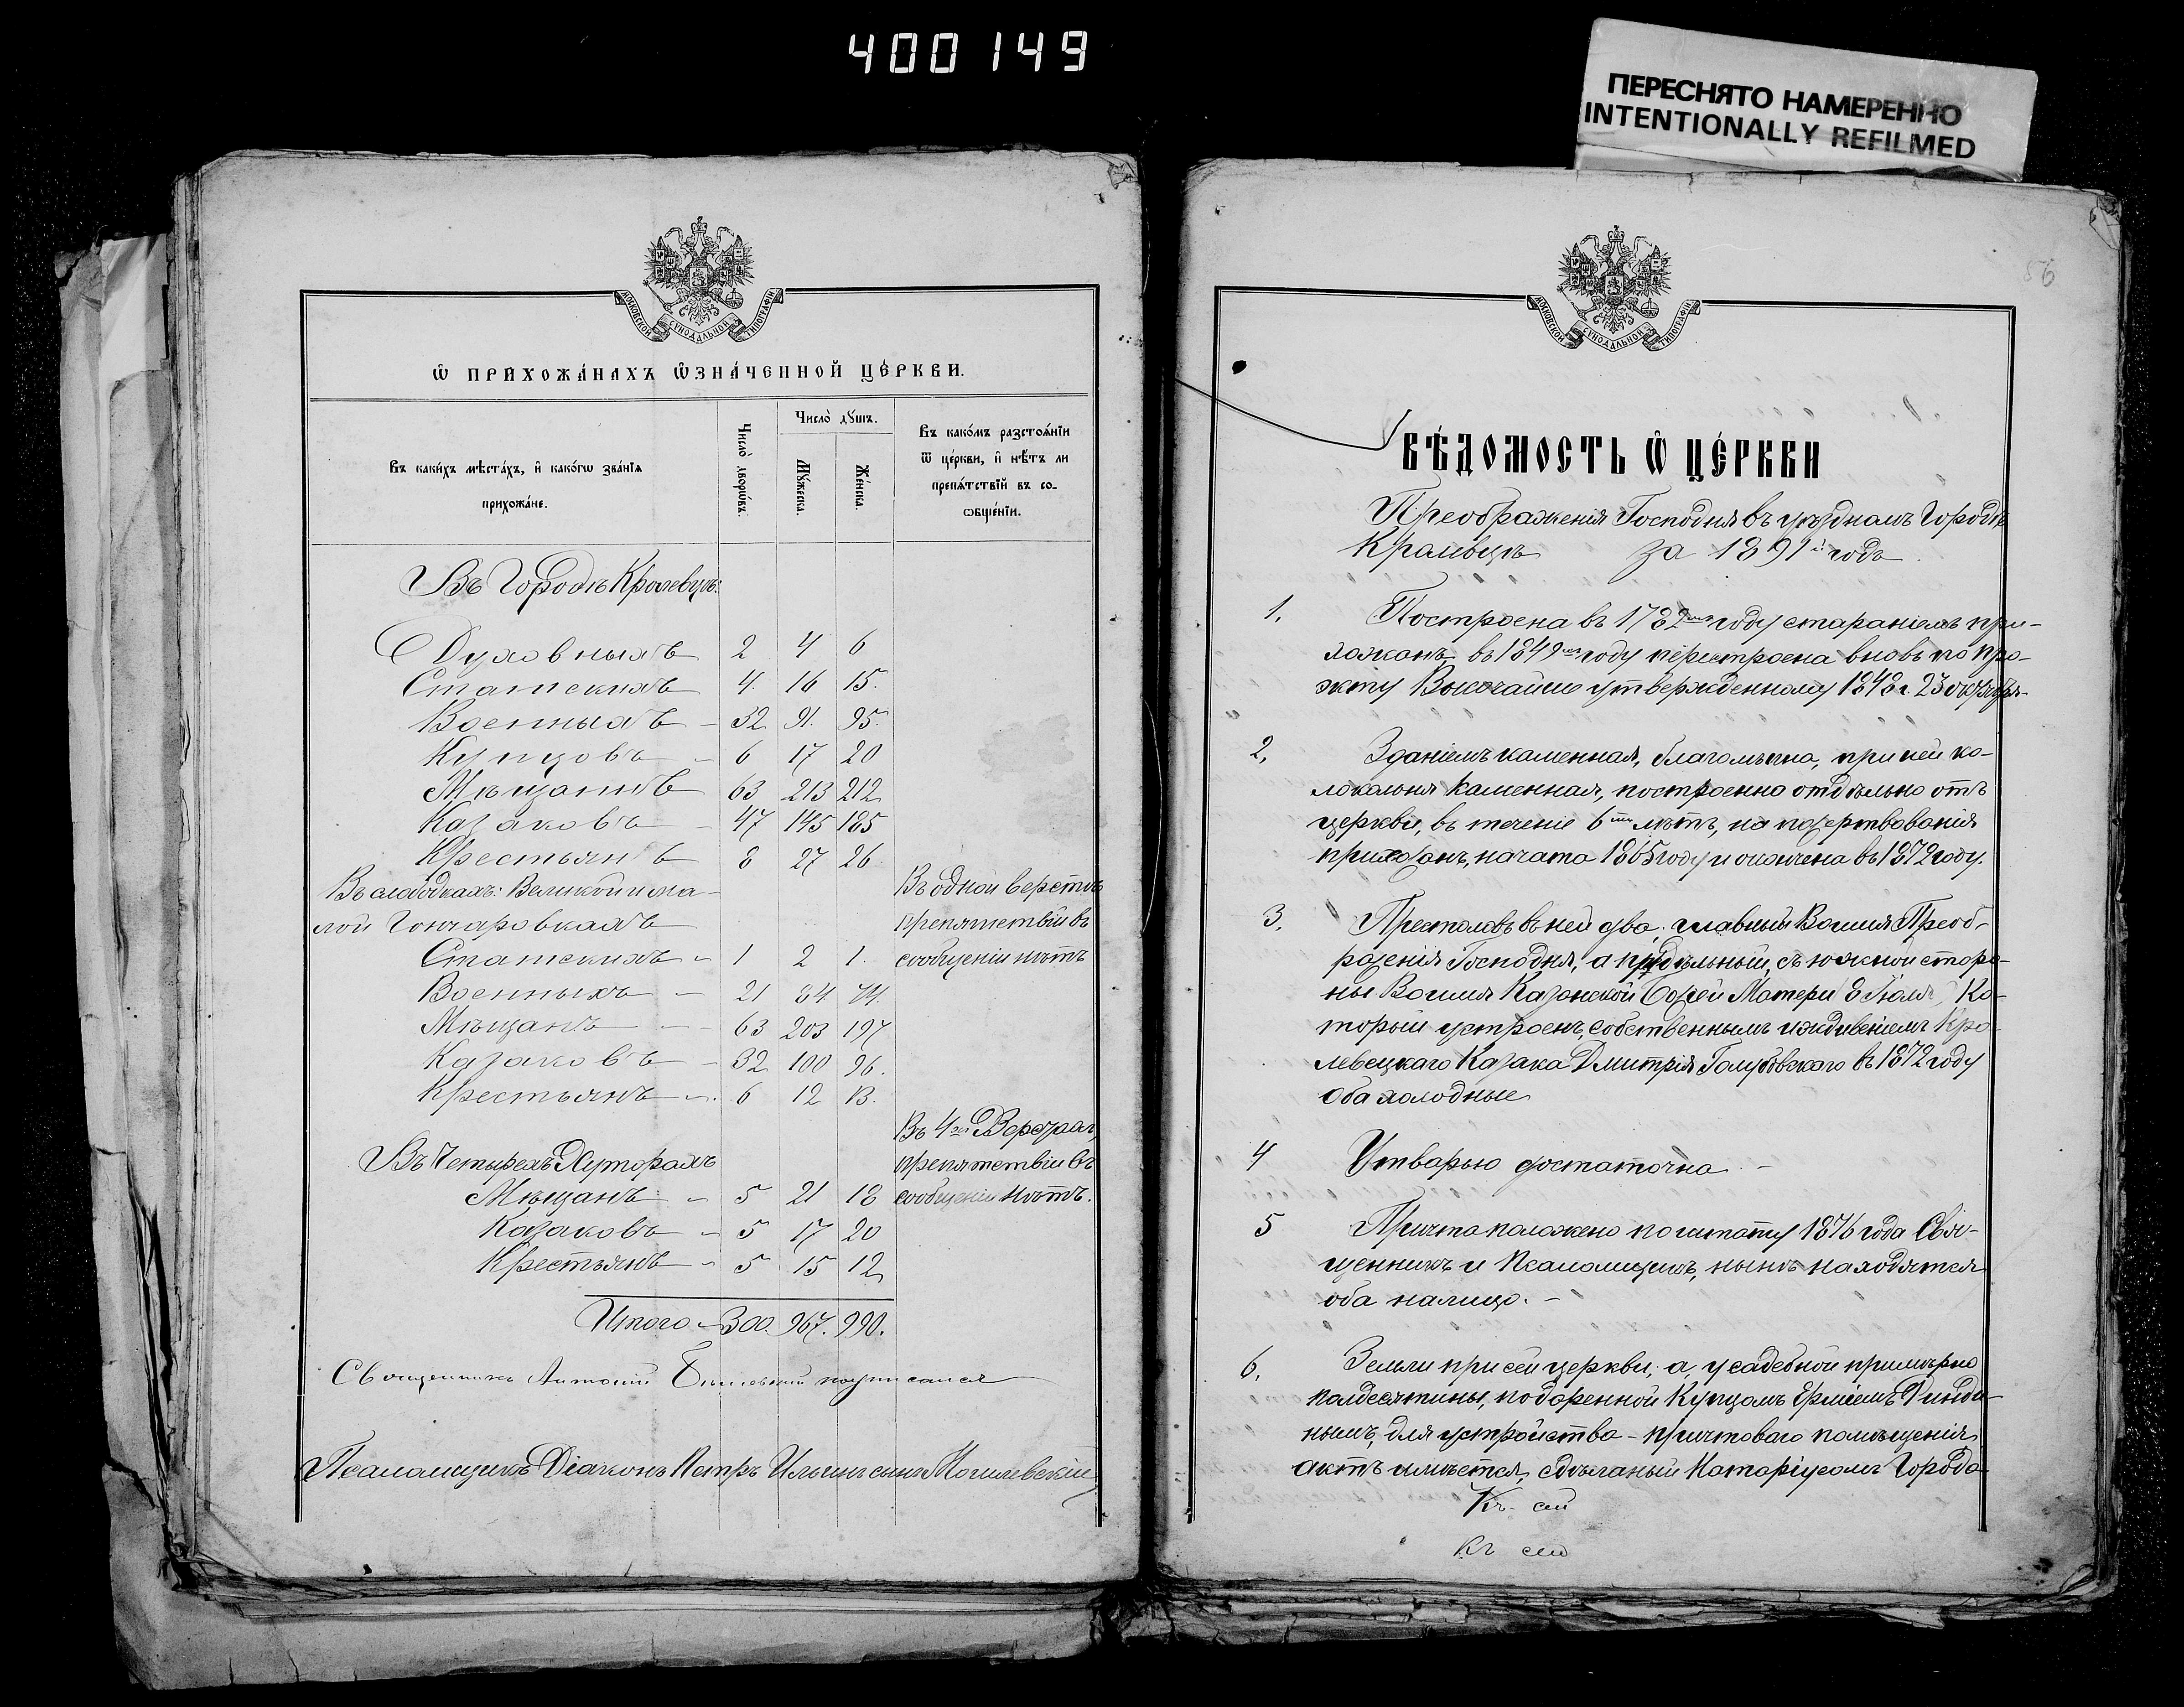 400149
ПЕРЕСНЯТО НАМЕРЕННО
INTENTIONALLY REFILMED
МОСКОВСКОЙ СѴНОДАЛЬНОЙ ТИПОГРАФІИ
Ѡ ПРИХОЖА́НАХЪ ѠЗНА́ЧЕННОЙ ЦЕ́РКВИ.
Въ каки́хъ мѣста́хъ, и҆ како́гѡ зва́нїѧ
прихожа́не.
Число̀ дворѡ́въ.
Число̀ дꙋшъ.
Мꙋ́жеска.
Же́нска.
Въ како́мъ разстоѧ́нїи
ѿ це́ркви, и҆ нѣ́тъ ли
препѧ́тствїй въ со-
ѡбще́нїи.
Въ Городѣ Кролевцѣ:
Духовныхъ 2 4 6
Статскихъ 4. 16 15.
Военныхъ – 32 91. 95.
Купцовъ – 6 17 20
Мѣщанъ 63 213 212
Казаковъ – 47 145 185
Крестьянъ 8 27 26
Въ слободкахъ: Великой и ма-
лой Гончаровкахъ
Въ одной верстѣ
препятствій въ
сообщеніи нѣтъ
Статскихъ – 1 2 1.
Военныхъ – 21 84 74.
Мѣщанъ – 63 203 197
Казаковъ – 32 100 96.
Крестьянъ –. 6 12 13.
Въ Четырехъ Хуторахъ
Въ 4хъ Верстах,
препятствій въ
сообщеніи нѣтъ.
Мѣщанъ – 5 21 18
Казаковъ – 5 17 20
Крестьянъ – 5 15 12
Итого – 300. 967. 990.
Священникъ Антоній подписался
Псаломщикъ Діаконъ Петръ Ильинъ сынъ Могилевскій
56
МОСКОВСКОЙ СѴНОДАЛЬНОЙ ТИПОГРАФІИ
ВѢ́ДОМОСТЬ Ѡ ЦЕ́РКВИ
Преображенія Господня въ уѣздномъ Городѣ
Кролевцѣ за 1891й годъ
1. Построена въ 1782мъ году стараніемъ при-
хожанъ, въ 1849мъ году перестроена вновь по про-
экту Высочайше утвержденному 1848 г. 23 октября.
2. Зданіемъ каменная, благолѣпна, при ней ко-
локольня каменная, построенна отдѣльно отъ
церкви, въ теченіе 6ти лѣтъ, на пожертвованія
прихожанъ, начата 1865 году и окончена въ 1872 году.
3. Престоловъ въ ней два; главный Во имя Преоб-
раженія Господня, а придѣльный, съ южной сторо-
ны Во имя Казанской Божей Матери 8 Іюля, Ко-
торый устроенъ, собственнымъ иждивеніемъ Кро-
левецкаго Казака Дмитрія Голубовскаго въ 1872 году
оба холодные
4 Утварью достаточна. –
5 Причта положено по штату 1876 года Свя-
щенникъ и Псаломщикъ, нынѣ находятся
оба налицо. –
6. Земли при сей церкви; а, усадебной примѣрно
полдесятины, подаренной Купцомъ Ерміемъ Ринди-
нымъ, для устройства – причтоваго помѣщенія
актъ имѣется, сдѣланый Нотаріусомъ Города
Къ сей
Къ сей